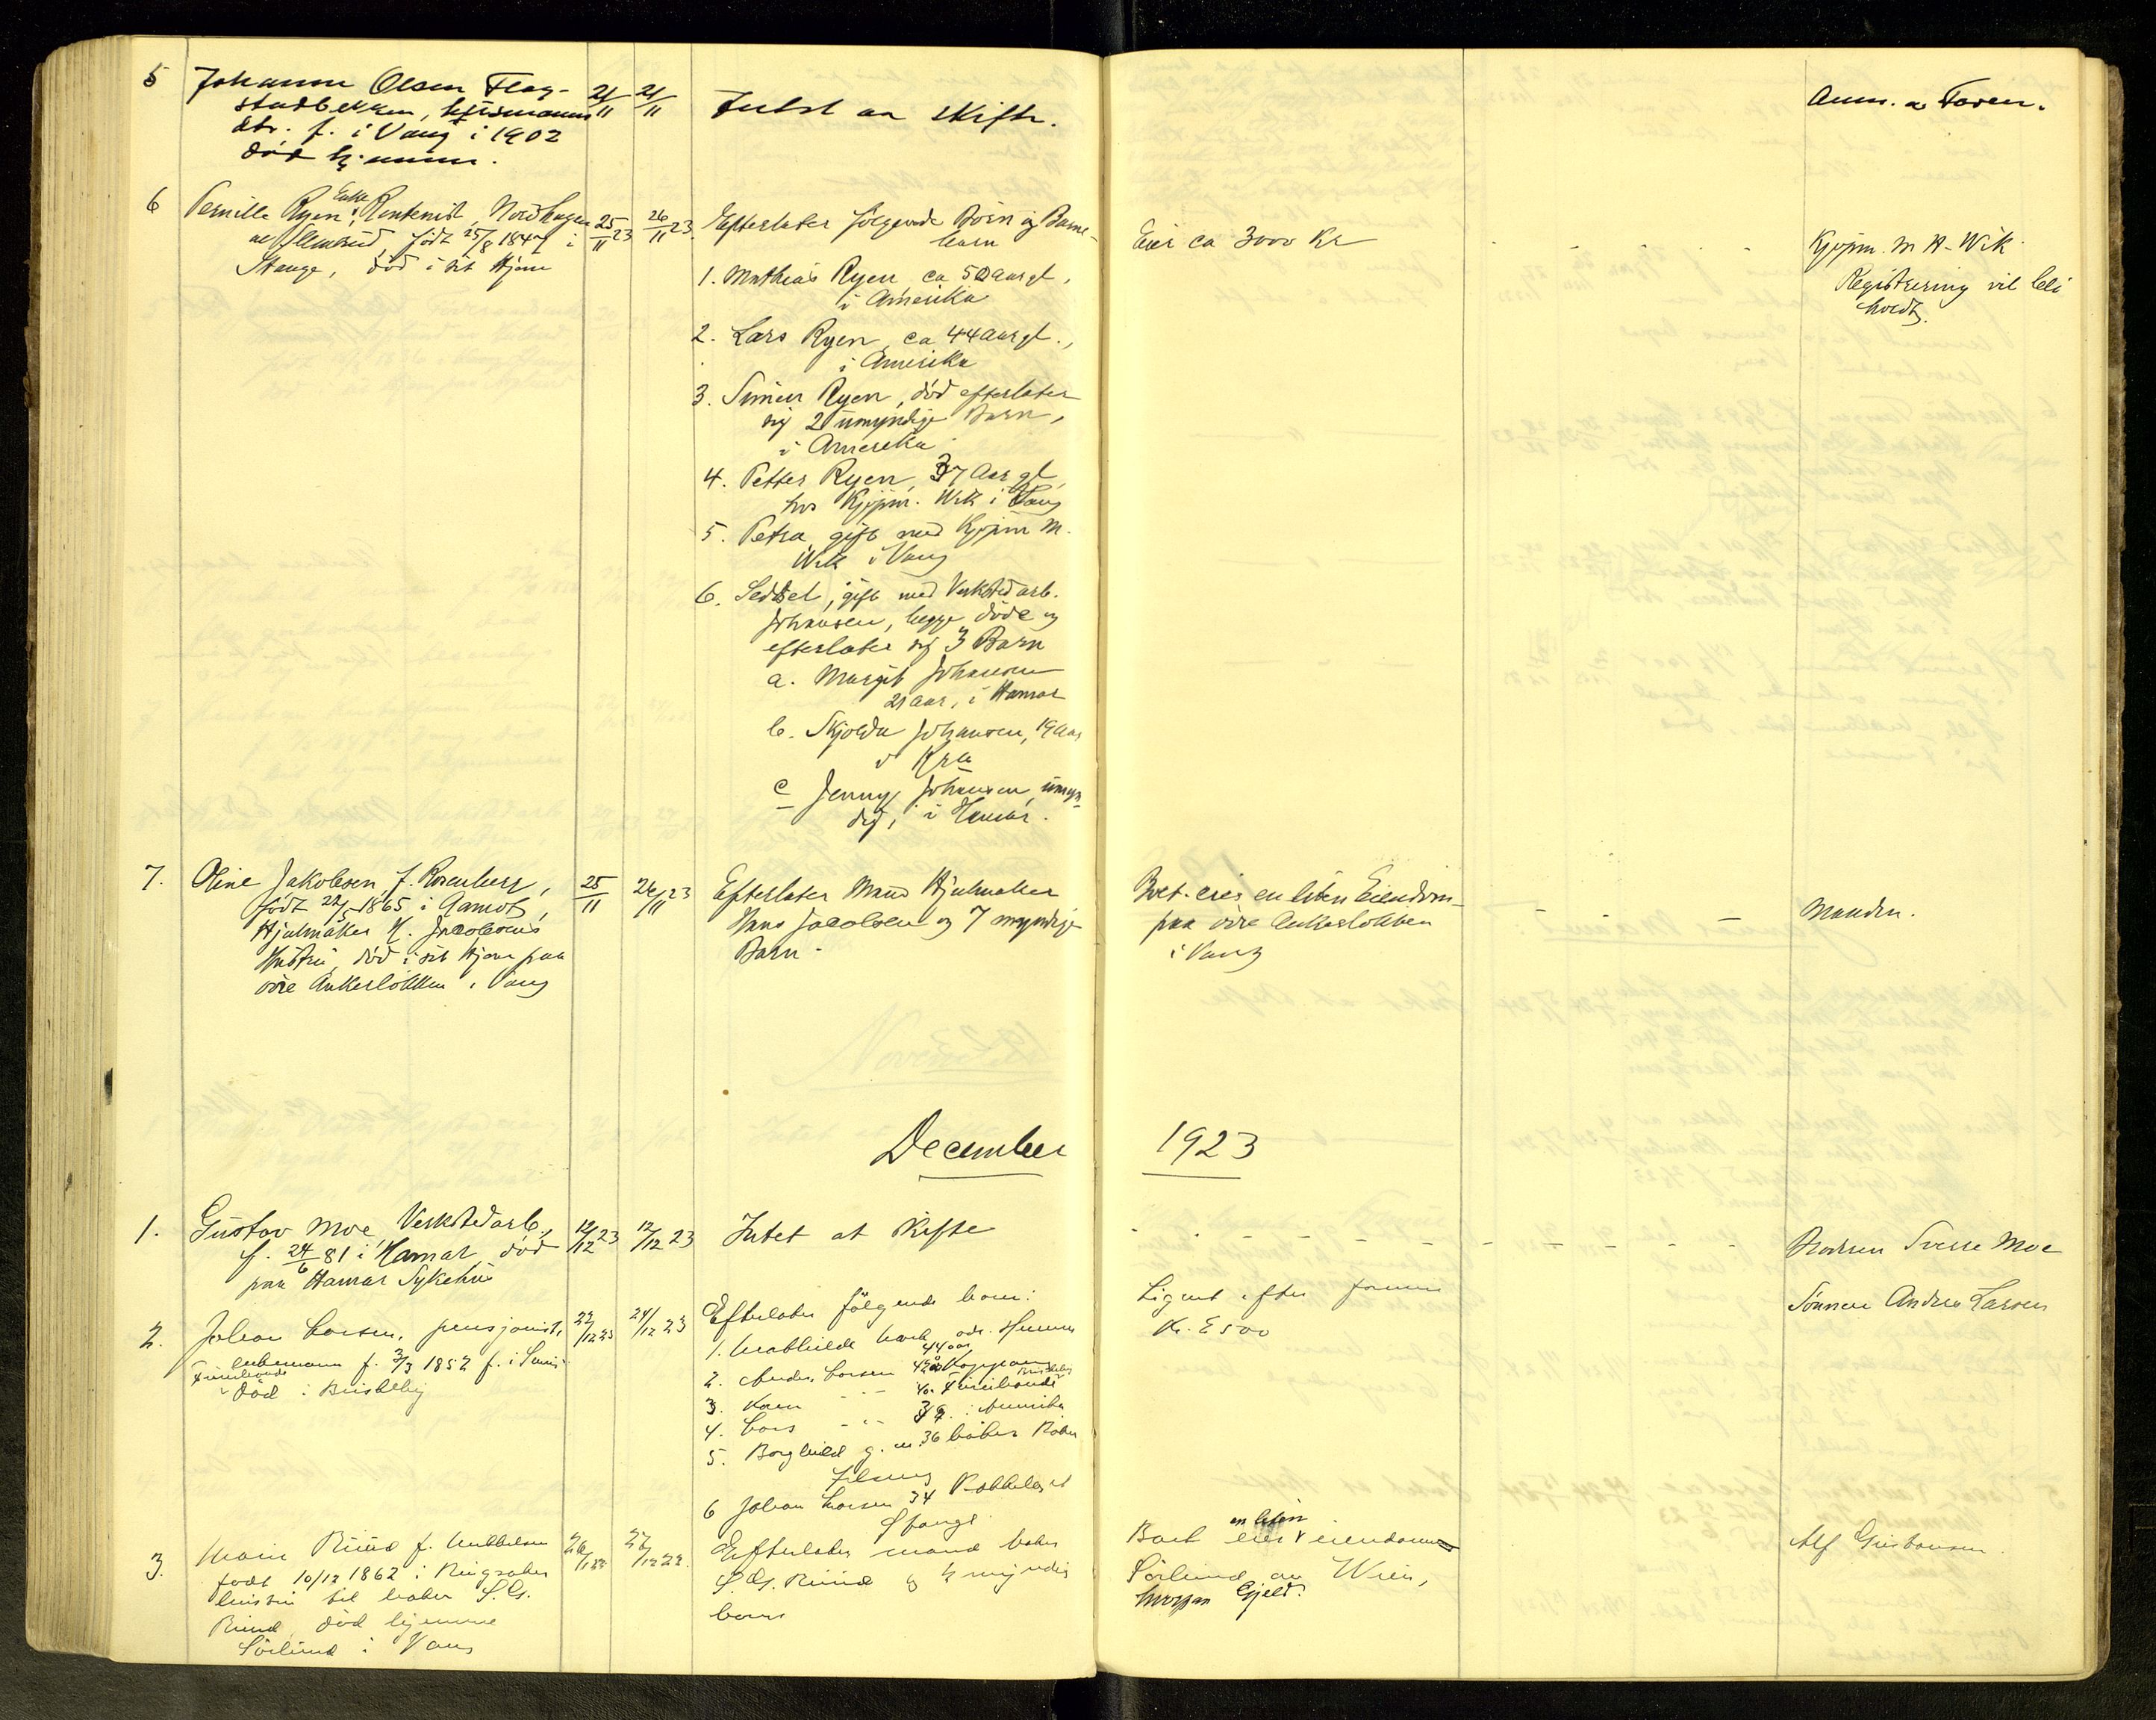 5 Johanne Olsen Flag-
stadbekken, husmanns
dtr. f. i Vang i 1902
død hjemme.
21/11 21/11
Intet aa skifte.
Anm. a Faren.
6 Pernille Ryen, Enke Rentenist, Nordhagen
født 25/8 1847 i
Stange, død i sit Hjem
25/11 23 26/11 23
Efterlater følgende Børn og Barne-
barn
1. Mathias Ryen ca 50 aar gl.,
i Amerika
2. Lars Ryen, ca 44 aar gl.,
i Amerika
3. Simen Ryen, død efterlater
sig 2 umyndige Barn,
i Amerika
4. Petter Ryen, 37 Aar gl,
hos Kjøpm. Wik i Vang
5. Petra, gift med Kjøpm M.
Wik i Vang
6. Sedsel, gift med Verkstedarb.
Johansen, begge døde og
efterlater sig 3 Barn
a. Margit Johansen
21 aar, i Hamar
b. Skjolda Johansen, 19 Aar
i Kra
c Jenny Johansen, umyn-
dig, i Hamar.
Eier ca 3000 Kr
Kjøpm. M A. Wik
Registrering vil bli
holdt.
7. Oline Jakobsen, f. Rosenberg,
født 22/5 1865 i Aamot,
Hjulmaker H. Jacobsens
Hustru, død i sit Hjem paa
øvre Ankerløkken i Vang
25/11 26/11 23
Efterlater Mand Hjulmaker
Hans Jacobsen og 7 myndige
Barn.
Boet eier en liten Eiendom
paa øvre Ankerløkken
i Vang
Manden.
December 1923
1. Gustav Moe, Verkstedarb.,
f. 24/6 81 i Hamar, død
paa Hamar Sykehus
12/12 23 12/12 23
Intet at skifte
Broderen Sverre Moe
2. Johan Larsen, pensjonist,
f. 3/3 1852 f. i
Furuberget
død i Briskeby
22/12 23 24/12 23
Efterlater følgende barn:
1. Mathilde
44 aar
2. Anders Larsen 42 aar Koppang
3. Karen 40
4. Lars i Amerika
5. Borghild g. m. 36 baker
6 Johan Larsen 34
Spangl
Lignet efter formue
Kr. 2500
Sønnen Anders Larsen
3. Marie Ruud f.
født 10/12 1862 i Ringsaker
hustru til baker S. G.
Ruud, død hjemme
Sørlund i Vang
Efterlater mand baker
S. G. Ruud og 4 myndig
barn
Boet eier en liten eiendom
Sørlund av Wien,
hvorpaa Gjeld.
Alf Gustavsen.